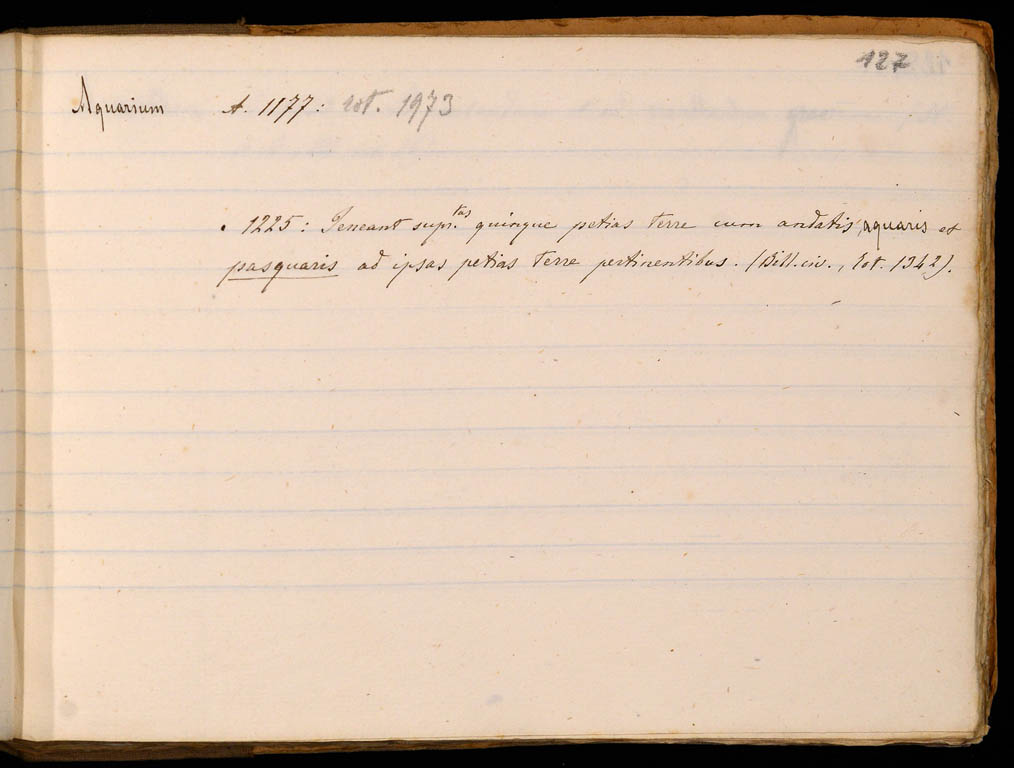 127
Aquarium A. 1177: rot. 1973
. 1225: Teneant supr.tas quinque petias terre cum andatis, aquaris et
pasquaris ad ipsas petias terre pertinentibus. (Bill. civ., rot. 1342).